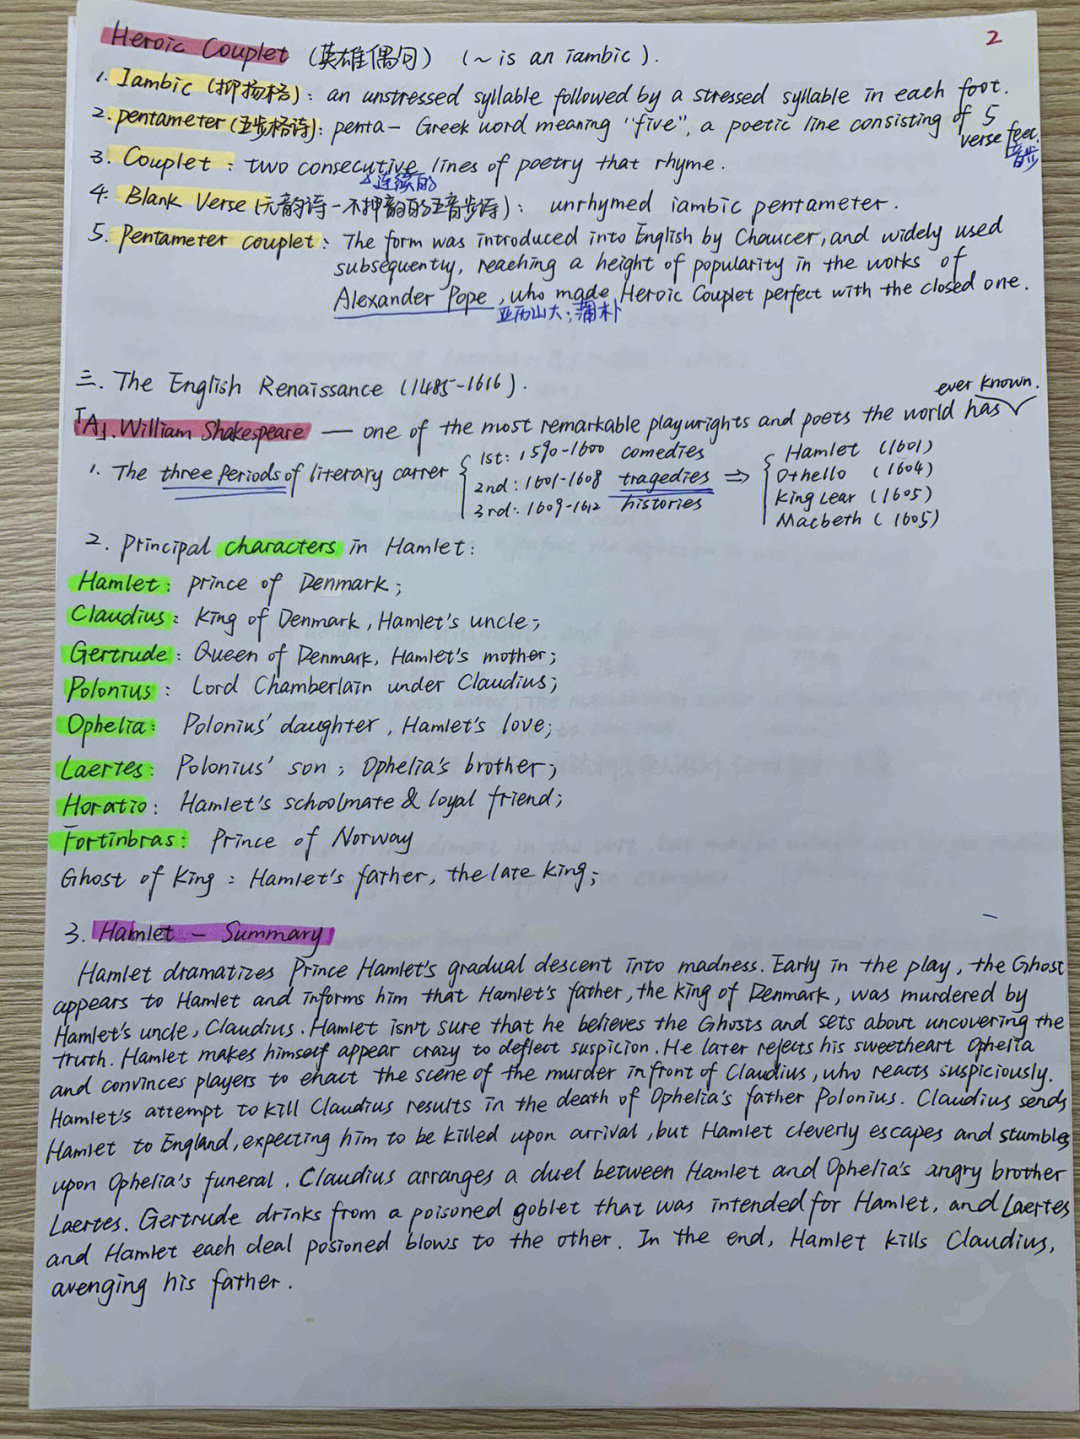 2
Heroic Couplet (英雄偶句) (~ is an iambic).
1. Iambic (抑扬格): an unstressed syllable followed by a stressed syllable in each foot.
2. pentameter (五步格诗): penta- Greek word meaning "five", a poetic line consisting of 5
verse feet.
音步
3. Couplet: two consecutive lines of poetry that rhyme.
连续的
4. Blank Verse (无韵诗-不押韵的五音步诗): unrhymed iambic pentameter.
5. Pentameter couplet: The form was introduced into English by Chaucer, and widely used
subsequently, reaching a height of popularity in the works of
Alexander Pope, who made Heroic Couplet perfect with the closed one.
亚历山大; 蒲朴
三. The English Renaissance (1485-1616).
ever known.
「A」. William Shakespeare — one of the most remarkable playwrights and poets the world has
1. The three Periods of literary carrer
1st: 1590-1600 comedies
2nd: 1601-1608 tragedies ⇒
3rd: 1609-1612 histories
Hamlet (1601)
Othello (1604)
King Lear (1605)
Macbeth (1605)
2. Principal characters in Hamlet:
Hamlet: prince of Denmark;
Claudius: King of Denmark, Hamlet's uncle;
Gertrude: Queen of Denmark, Hamlet's mother;
Polonius: Lord Chamberlain under Claudius;
Ophelia: Polonius' daughter, Hamlet's love;
Laertes: Polonius' son; Ophelia's brother;
Horatio: Hamlet's schoolmate & loyal friend;
Fortinbras: Prince of Norway
Ghost of King: Hamlet's father, the late king;
3. Hamlet - Summary
Hamlet dramatizes Prince Hamlet's gradual descent into madness. Early in the play, the Ghost
appears to Hamlet and informs him that Hamlet's father, the king of Denmark, was murdered by
Hamlet's uncle, Claudius. Hamlet isn't sure that he believes the Ghosts and sets about uncovering the
truth. Hamlet makes himself appear crazy to deflect suspicion. He later rejects his sweetheart Ophelia
and convinces players to enact the scene of the murder in front of Claudius, who reacts suspiciously.
Hamlet's attempt to kill Claudius results in the death of Ophelia's father Polonius. Claudius sends
Hamlet to England, expecting him to be killed upon arrival, but Hamlet cleverly escapes and stumbles
upon Ophelia's funeral. Claudius arranges a duel between Hamlet and Ophelia's angry brother
Laertes. Gertrude drinks from a poisoned goblet that was intended for Hamlet, and Laertes
and Hamlet each deal posioned blows to the other. In the end, Hamlet kills Claudius,
avenging his father.